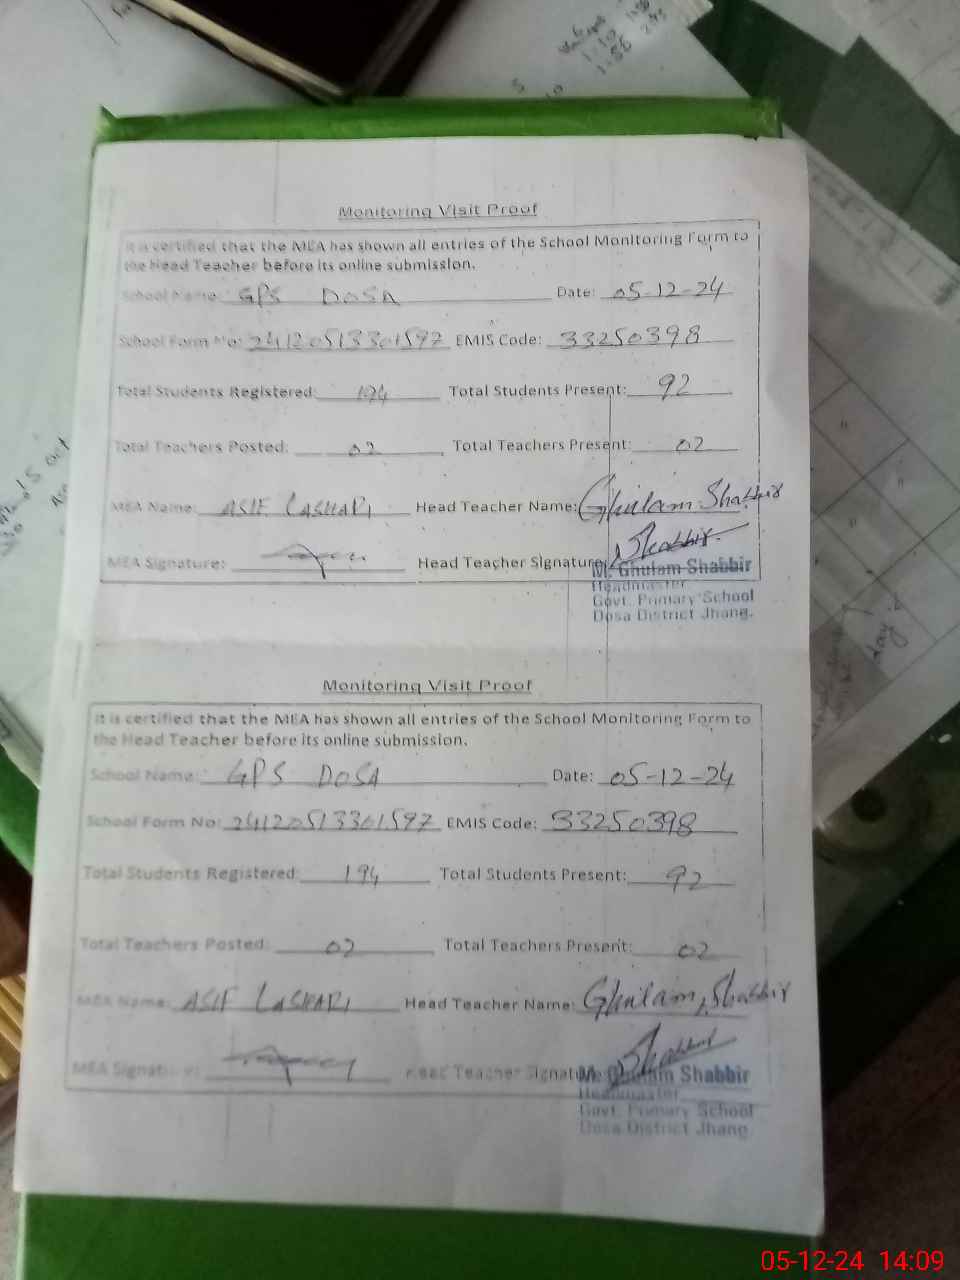 1:10
1:56
Monitoring Visit Proof
It is certified that the MEA has shown all entries of the School Monitoring Form to
the Head Teacher before its online submission.
School Name: GPS DOSA Date: 05-12-24
School Form No: 24120513301597 EMIS Code: 33250398
Total Students Registered: 194 Total Students Present: 92
Total Teachers Posted: 02 Total Teachers Present: 02
MEA Name: ASIF LASHARI Head Teacher Name: Ghulam Shabbir
MEA Signature: Head Teacher Signature: Shabbir
M. Ghulam Shabbir
Headmaster
Govt. Primary School
Dosa District Jhang.
Monitoring Visit Proof
It is certified that the MEA has shown all entries of the School Monitoring Form to
the Head Teacher before its online submission.
School Name: GPS DOSA Date: 05-12-24
School Form No: 24120513301597 EMIS Code: 33250398
Total Students Registered: 194 Total Students Present: 92
Total Teachers Posted: 02 Total Teachers Present: 02
MEA Name: ASIF LASHARI Head Teacher Name: Ghulam Shabbir
MEA Signature: Head Teacher Signature: Shabbir
M. Ghulam Shabbir
Headmaster
Govt. Primary School
Dosa District Jhang.
05-12-24 14:09